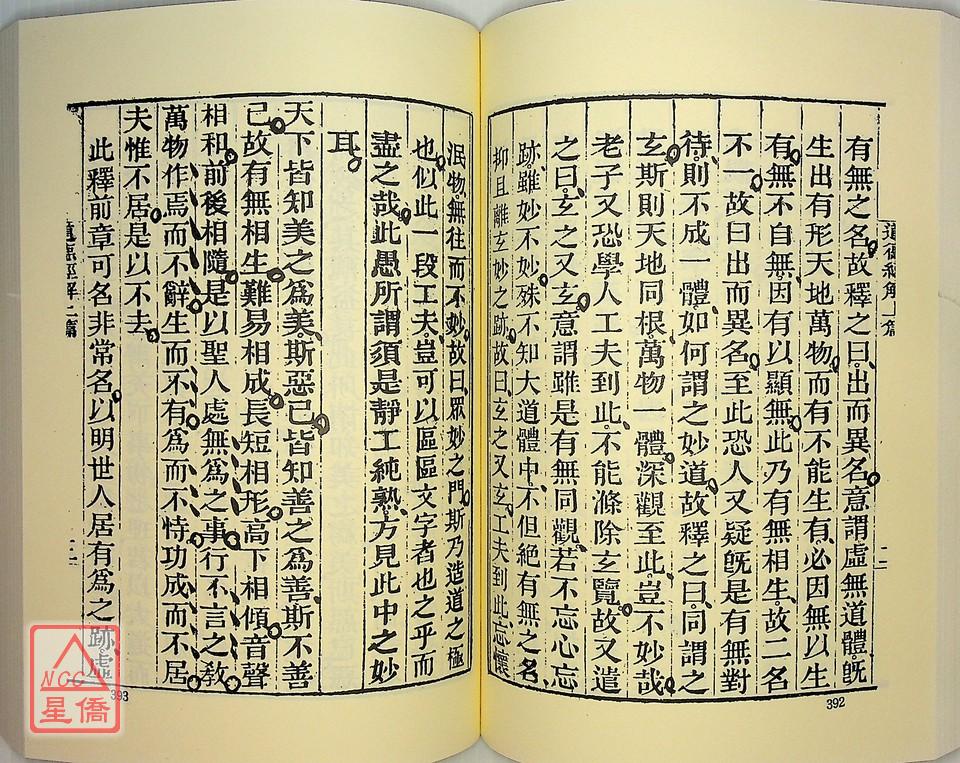 有無之名、故釋之曰、出而異名。意謂虛無道體、旣
生出有形天地萬物。而有不能生有、必因無以生
有。無不自無、因有以顯無。此乃有無相生。故二名
不一。故曰出而異名。至此恐人又疑旣是有無對
待、則不成一體。如何謂之妙道。故釋之曰、同謂之
玄。斯則天地同根、萬物一體。深觀至此、豈不妙哉。
老子又恐學人工夫到此、不能滌除玄覽。故又遣
之曰、玄之又玄。意謂雖是有無同觀、若不忘心忘
跡、雖妙不妙。殊不知大道體中、不但絕有無之名、
抑且離玄妙之跡。故曰、玄之又玄。工夫到此、忘懷
泯物。無往而不妙。故曰、眾妙之門。斯乃造道之極
也。似此一段工夫、豈可以區區文字者也之乎而
盡之哉。此愚所謂須是靜工純熟、方見此中之妙
耳。
天下皆知美之為美、斯惡已。皆知善之為善、斯不善
已。故有無相生、難易相成、長短相形、高下相傾、音聲
相和、前後相隨。是以聖人處無為之事、行不言之教。
萬物作焉而不辭、生而不有、為而不恃、功成而不居。
夫惟不居、是以不去。
此釋前章可名非常名、以明世人居有為之跡、虛
道德經解上篇
二
392
道德經解上篇
393
NCC
星僑